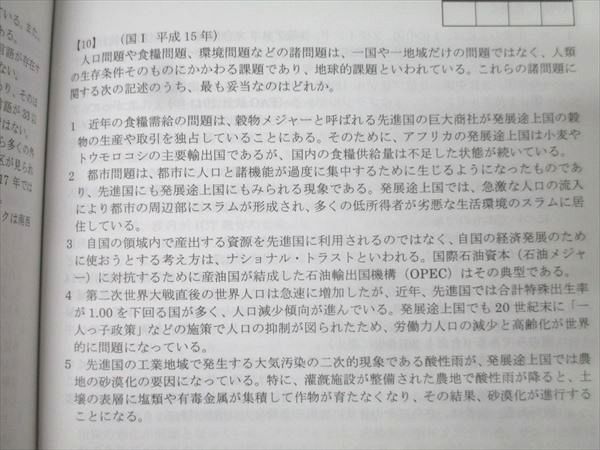 いる。また、
ある。
言語が存在す
ない。
あり、そのほ
言語が 33 以
はない。
ら多くの外
区が見られ
17 年では
。
クは南西
【10】 （国Ⅰ 平成 15 年）
人口問題や食糧問題、環境問題などの諸問題は、一国や一地域だけの問題ではなく、人類
の生存条件そのものにかかわる課題であり、地球的課題といわれている。これらの諸問題に
関する次の記述のうち、最も妥当なのはどれか。
1 近年の食糧需給の問題は、穀物メジャーと呼ばれる先進国の巨大商社が発展途上国の穀
物の生産や取引を独占していることにある。そのために、アフリカの発展途上国は小麦や
トウモロコシの主要輸出国であるが、国内の食糧供給量は不足した状態が続いている。
2 都市問題は、都市に人口と諸機能が過度に集中するために生じるようになったものであ
り、先進国にも発展途上国にもみられる現象である。発展途上国では、急激な人口の流入
により都市の周辺部にスラムが形成され、多くの低所得者が劣悪な生活環境のスラムに居
住している。
3 自国の領域内で産出する資源を先進国に利用されるのではなく、自国の経済発展のため
に使おうとする考え方は、ナショナル・トラストといわれる。国際石油資本（石油メジャ
ー）に対抗するために産油国が結成した石油輸出国機構（OPEC）はその典型である。
4 第二次世界大戦直後の世界人口は急速に増加したが、近年、先進国では合計特殊出生率
が 1.00 を下回る国が多く、人口減少傾向が進んでいる。発展途上国でも 20 世紀末に「一
人っ子政策」などの施策で人口の抑制が図られたため、労働力人口の減少と高齢化が世界
的に問題になっている。
5 先進国の工業地域で発生する大気汚染の二次的現象である酸性雨が、発展途上国では農
地の砂漠化の要因になっている。特に、灌漑施設が整備された農地で酸性雨が降ると、土
壌の表層に塩類や有毒金属が集積して作物が育たなくなり、その結果、砂漠化が進行する
ことになる。